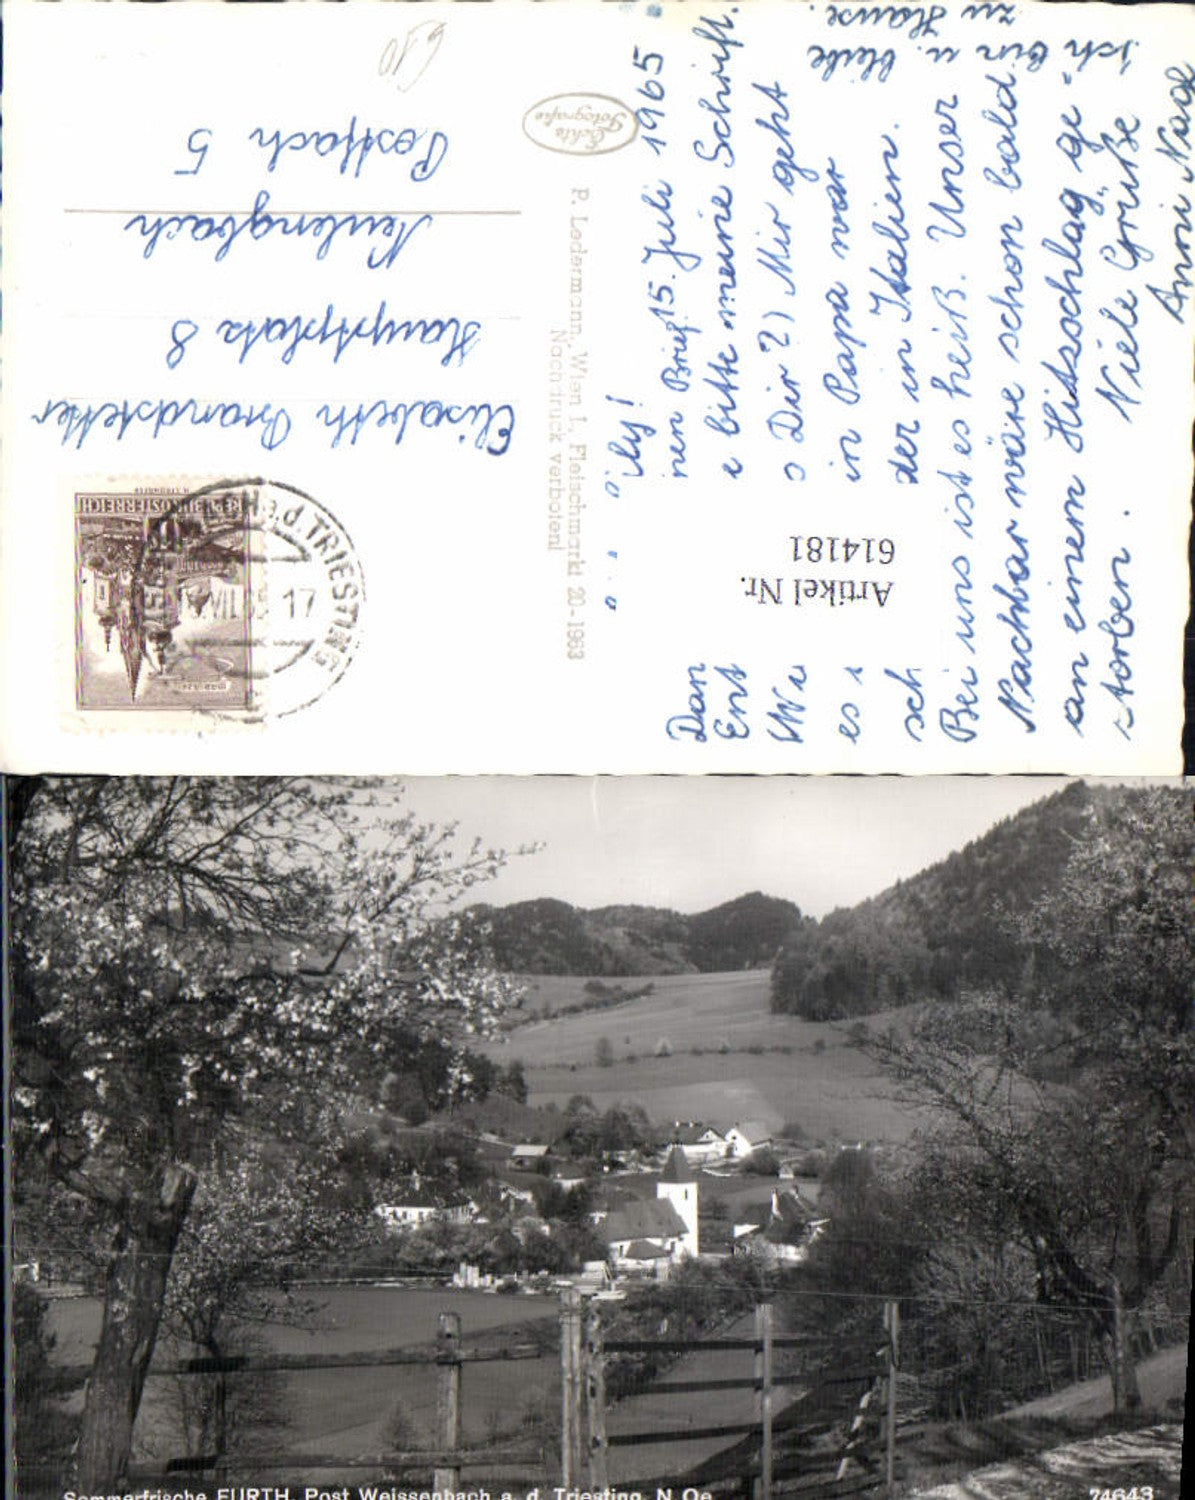 15. Juli 1965
ily!
Dan
nen Brief.
Ent
e bitte meine Schrift.
Wie
Dir?) Mir geht
es
in Papa war
sch
der in Italien.
Bei uns ist es heiß. Unser
Nachbar wäre schon bald
an einem Hitzschlag „ge"
storben. Viele Grüße
Anni
ich bin u. bleibe
zu Hause.
Artikel Nr.
614181
Echte
Fotografie
P. Ledermann, Wien I., Fleischmarkt 20 - 1963
Nachdruck verboten!
REPUBLIK ÖSTERREICH
a.d. TRIESTING
VII.65 17
Elisabeth Brandstetter
Hauptplatz 8
Neulengbach
Postfach 5
Sommerfrische FURTH, Post Weissenbach a. d. Triesting, N. Oe.
74643